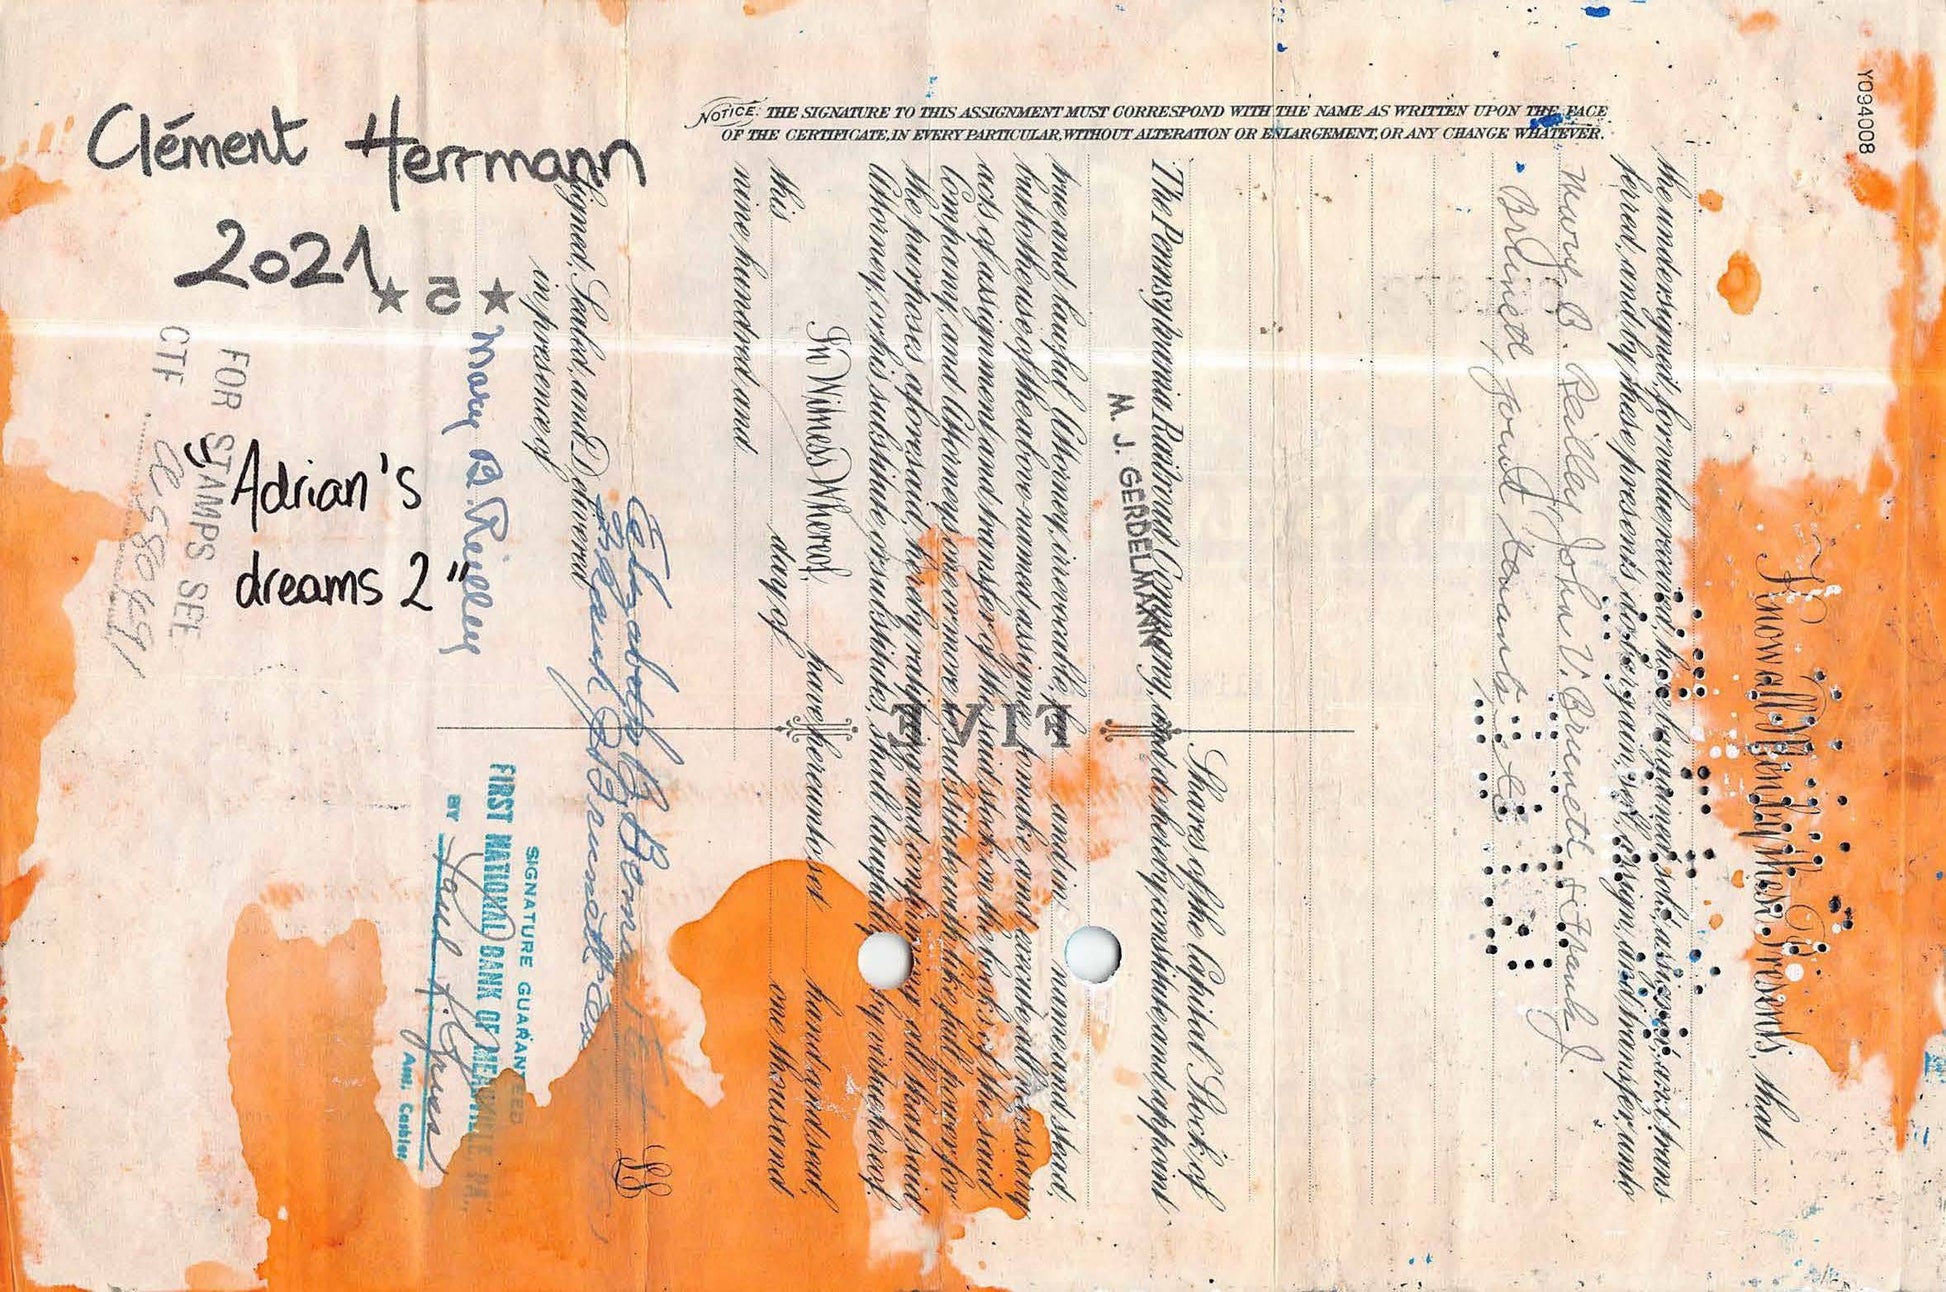 Clément Herrmann
2021
"Adrian's
dreams 2"
NOTICE: THE SIGNATURE TO THIS ASSIGNMENT MUST CORRESPOND WITH THE NAME AS WRITTEN UPON THE FACE
OF THE CERTIFICATE, IN EVERY PARTICULAR, WITHOUT ALTERATION OR ENLARGEMENT, OR ANY CHANGE WHATEVER.
Y094008
Know all Men by these Presents, that
the undersigned, for value received, have bargained, sold, assigned, and trans
ferred, and by these presents, do bargain, sell, assign, and transfer, unto
Mary B. Reilley, John V. Brunett & Frank J.
Brunett joint tenants etc
Shares of the Capital Stock of
The Pennsylvania Railroad Company, and do hereby constitute and appoint
M. J. GERDELMANN
true and lawful Attorney, irrevocable, for and in name and stead,
but to the use of the above named assignee to make and execute all necessary
acts of assignment and transfer of the said stock on the books of the said
Company, and Attorneys one or more to substitute with like full power for
the purposes aforesaid, hereby ratifying and confirming all that said
Attorney or his substitute, or substitutes, shall lawfully do by virtue hereof.
In Witness Whereof, have hereunto set hand and seal,
this day of one thousand
nine hundred and
Signed, Sealed, and Delivered
in presence of
Elizabeth B.
Frank J. Brunett
LS
Mary B. Reilley
SIGNATURE GUARANTEED
FIRST NATIONAL BANK OF
BY
Asst. Cashier
FIVE
★ 5 ★
FOR STAMPS SEE
CTF